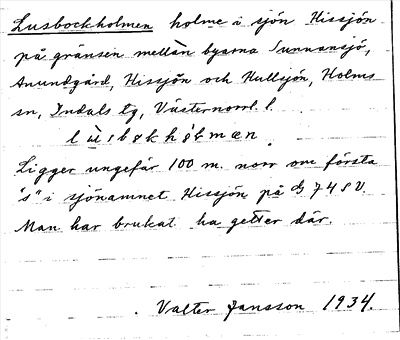 Lusbockholmen holme i sjön Hissjön
på gränsen mellan byarna Sunnansjö,
Anundgård, Hissjön och Kullsjön, Holms
sn, Indals tg, Västernorrl. l.
Ligger ungefär 100 m. norr om första
"s" i sjönamnet Hissjön på 748 V.
Man har brukat ha getter där.
Valter Jansson 1934.